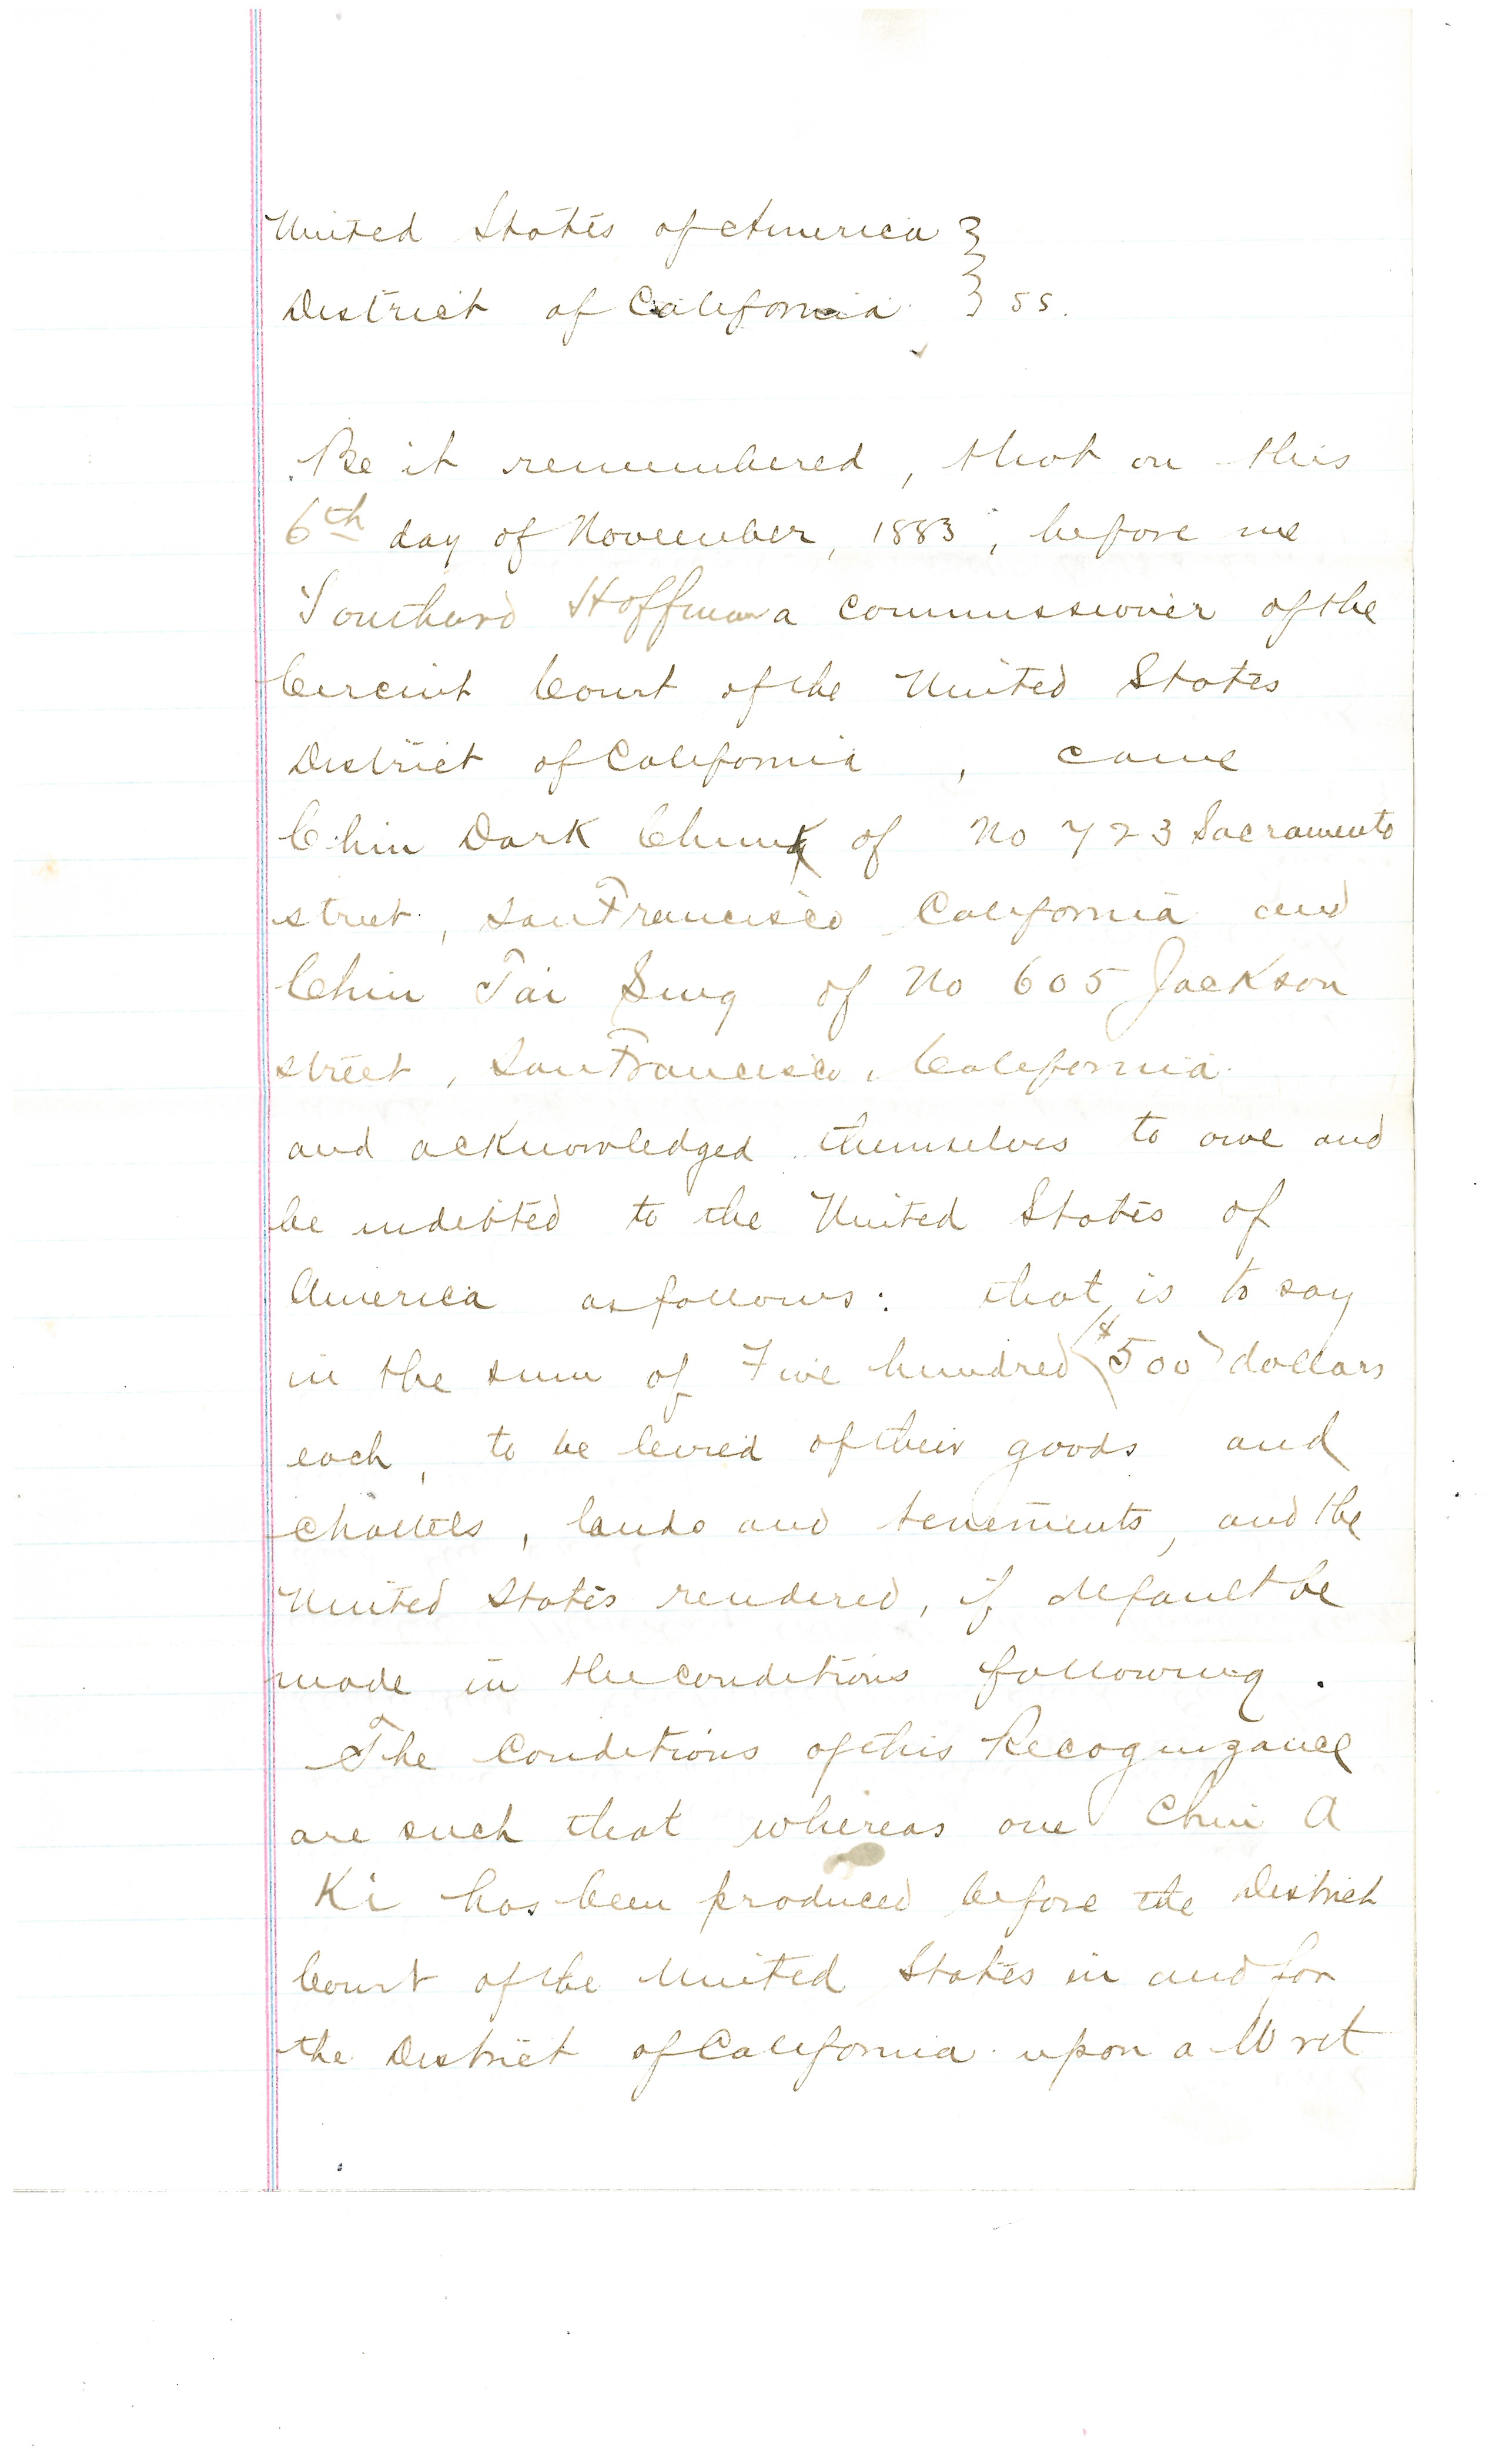 United States of America }
District of California } ss.
Be it remembered, that on this
6th day of November, 1883, before me
Southard Hoffman a commissioner of the
Circuit Court of the United States
District of California , came
Chin Dark Chunk of No 723 Sacramento
street, San Francisco California and
Chin Tai Sing of No 605 Jackson
street, San Francisco, California.
and acknowledged themselves to owe and
be indebted to the United States of
America as follows: that is to say
in the sum of Five hundred ($500) dollars
each, to be levied of their goods and
chattels, lands and tenements, and the
United States rendered, if default be
made in the conditions following.
The Conditions of this Recognizance
are such that whereas one Chin A
Ki has been produced before the District
Court of the United States in and for
the District of California upon a Writ